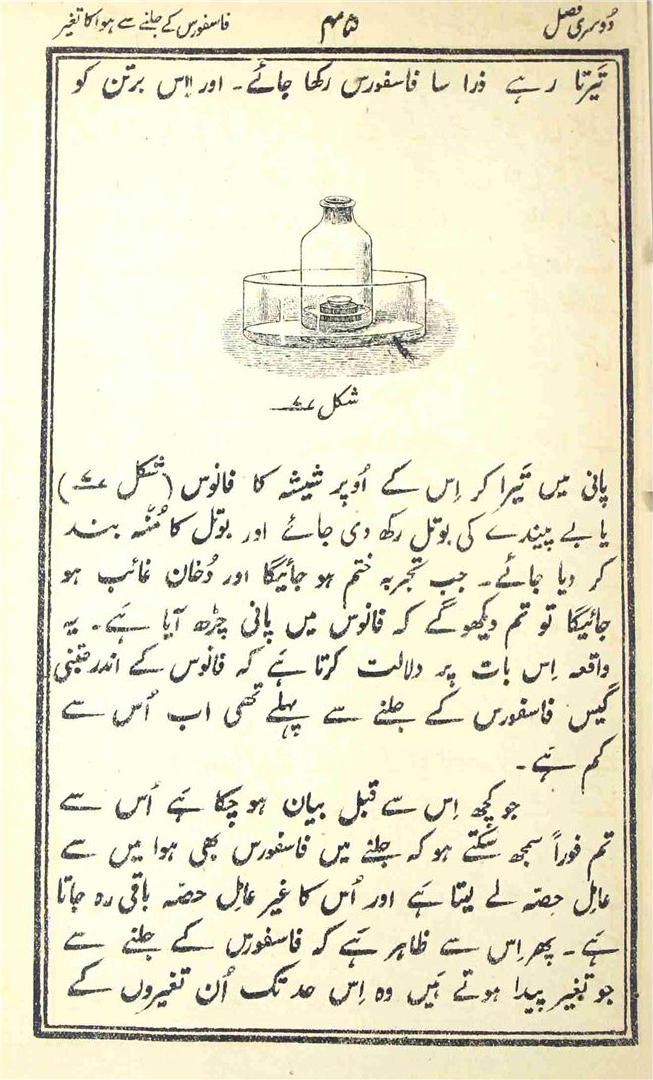 دُوسری فصل
۳۵
فاسفورس کے جلنے سے ہوا کا تغیر
تَیرتا رہے ذرا سا فاسفورس رکھا جائے۔ اور اس برتن کو
شکل ۷
پانی میں تَیرا کر اِس کے اُوپر شیشہ کا فانوس (شکل ۷)
یا بے پیندے کی بوتل رکھ دی جائے اور بوتل کا مُنہ بند
کر دیا جائے۔ جب تجربہ ختم ہو جائیگا اور دُخان غائب ہو
جائیگا تو تم دیکھوگے کہ فانوس میں پانی چڑھ آیا ہَے۔ یہ
واقعہ اِس بات پر دلالت کرتا ہَے کہ فانوس کے اندر جتنی
گیس فاسفورس کے جلنے سے پہلے تھی اب اُس سے
کم ہَے۔
جو کچھ اِس سے قبل بیان ہو چکا ہَے اُس سے
تم فوراً سمجھ سکتے ہو کہ جلنے میں فاسفورس بھی ہوا میں سے
عامِل حِصّہ لے لیتا ہَے اور اُس کا غیر عامِل حصّہ باقی رہ جاتا
ہَے۔ پھر اِس سے ظاہر ہَے کہ فاسفورس کے جلنے سے
جو تغیر پیدا ہوتے ہَیں وہ اِس حد تک اُن تغیروں کے